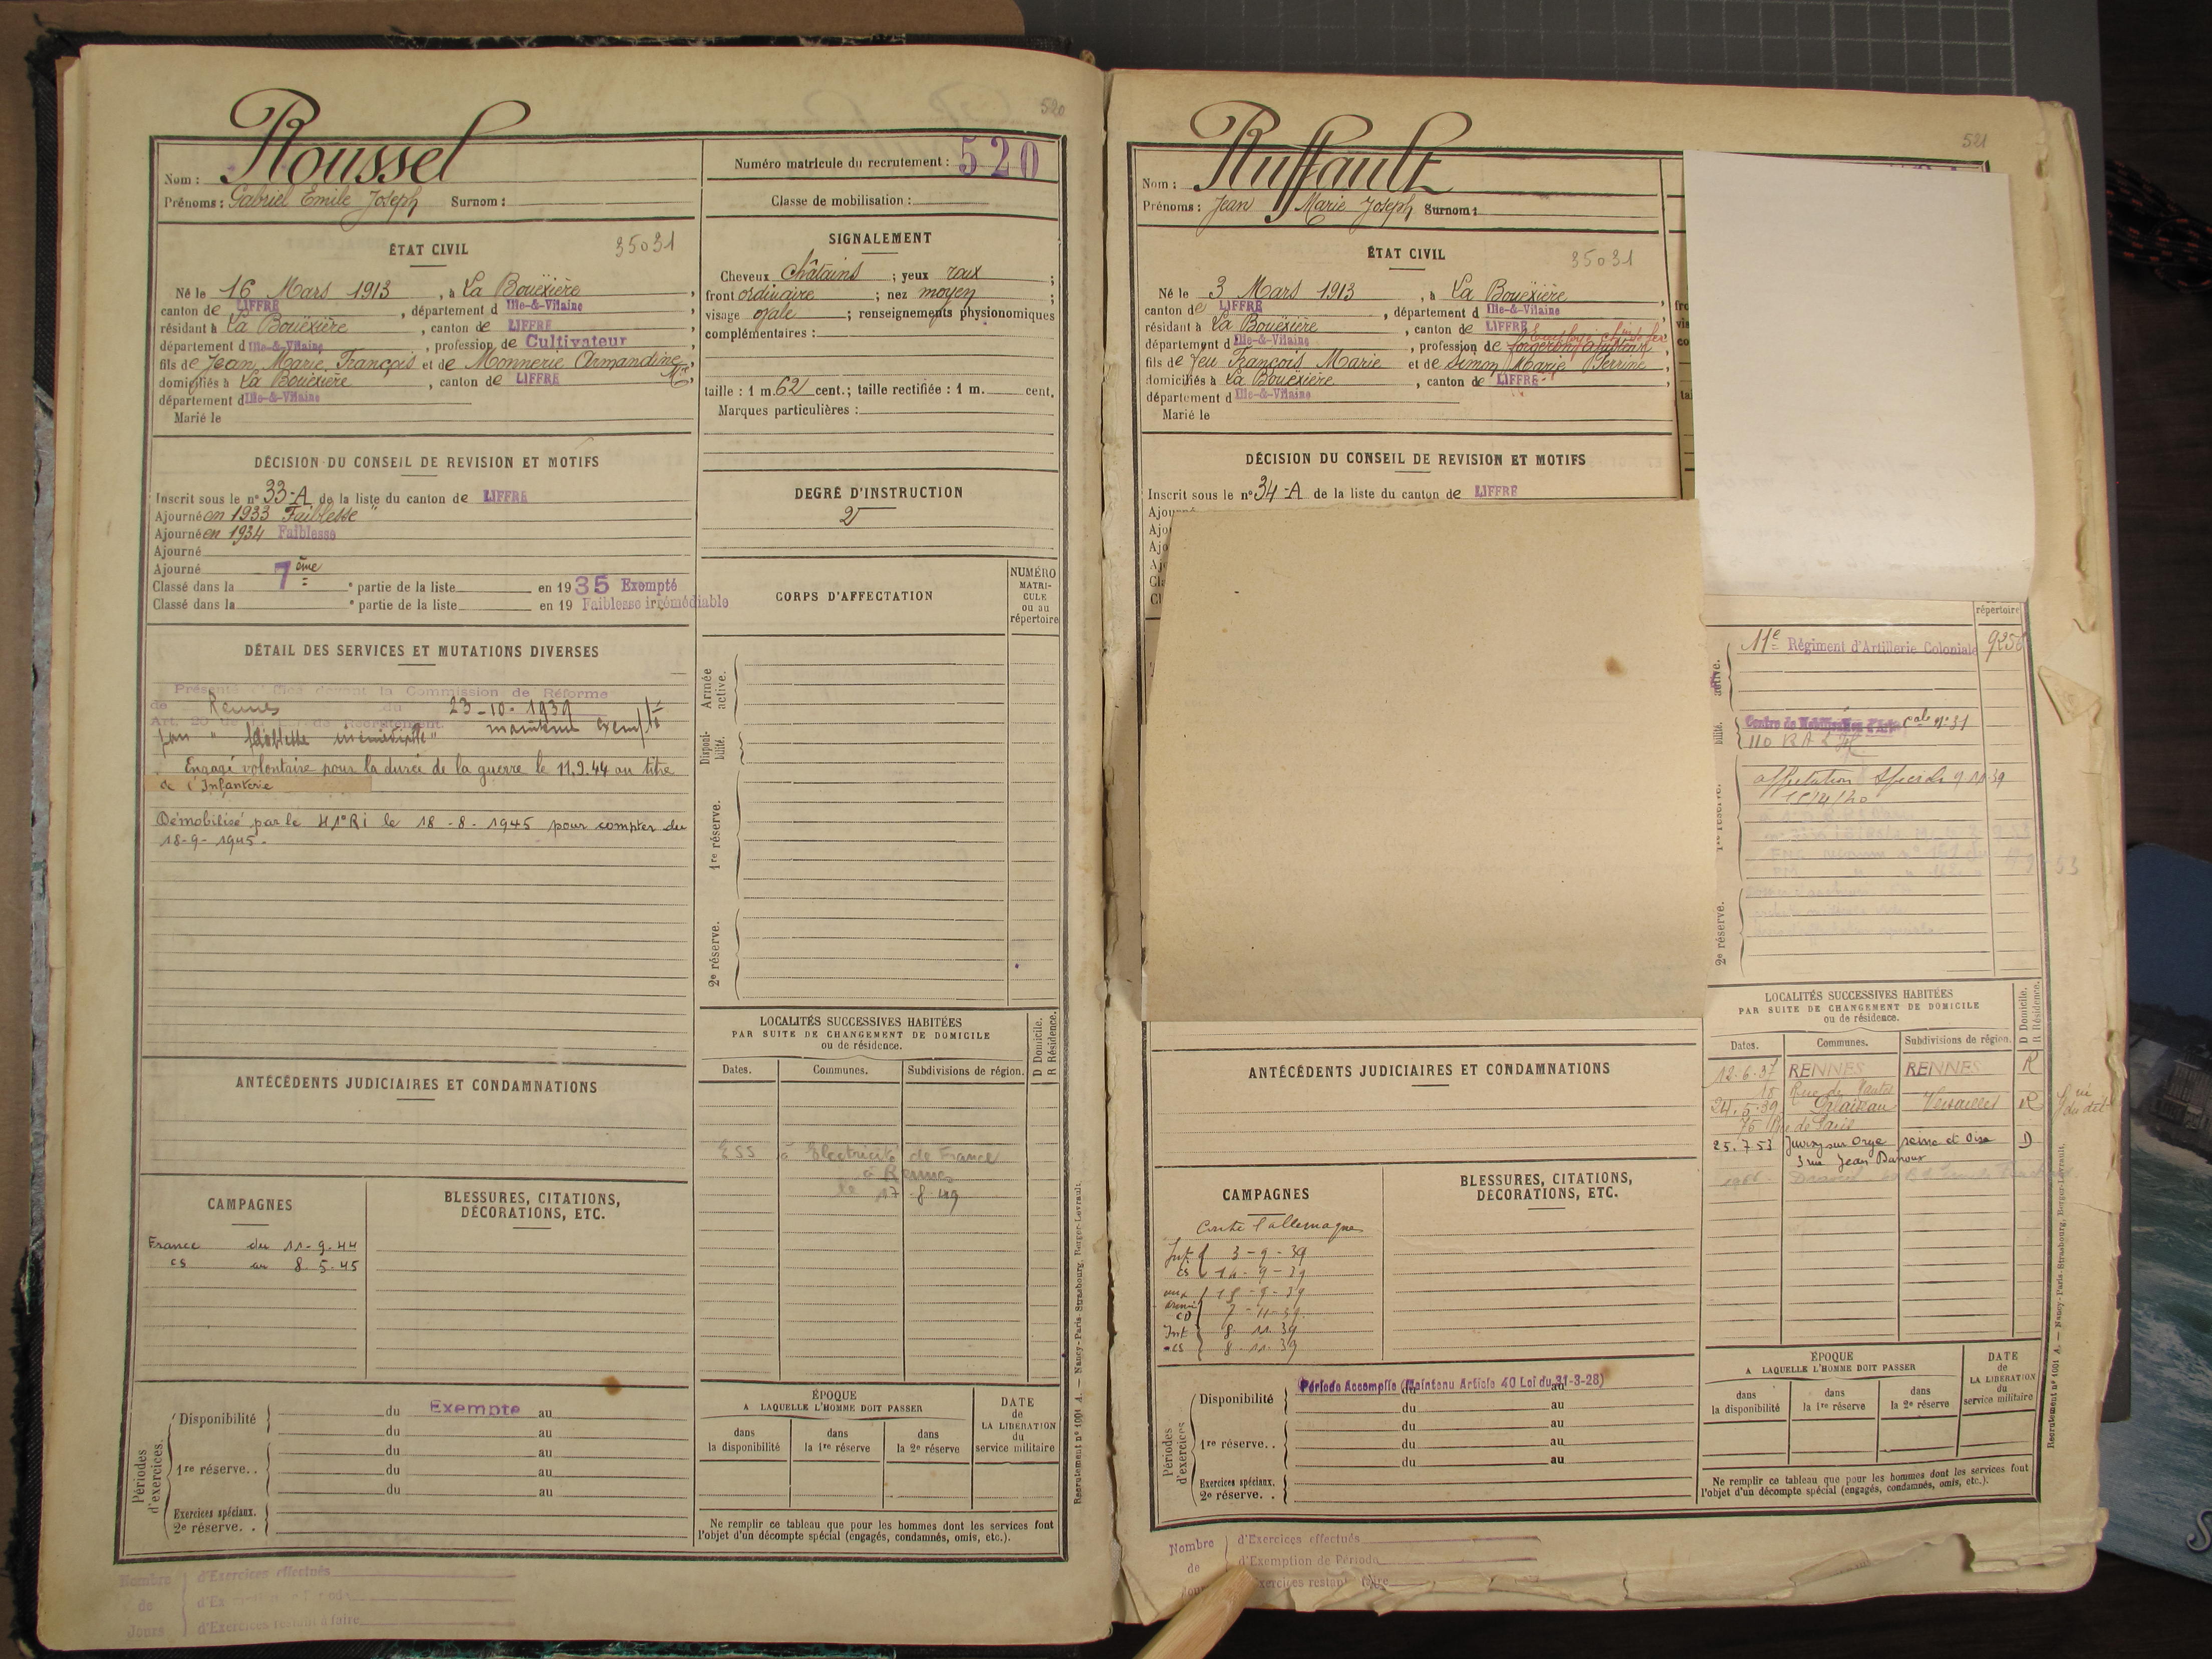 520
Roussel
Nom :
Prénoms : Gabriel Emile Joseph Surnom :
Numéro matricule du recrutement : 520
Classe de mobilisation :
ÉTAT CIVIL
35031
Né le 16 Mars 1913, à La Bouëxière,
canton de LIFFRÉ, département d Ille-&-Vilaine,
résidant à La Bouëxière, canton de LIFFRÉ,
département d Ille-&-Vilaine, profession de Cultivateur
fils de Jean, Marie, François et de Monnerie Armandine,
domiciliés à La Bouëxière, canton de LIFFRÉ,
département d Ille-&-Vilaine
Marié le
SIGNALEMENT
Cheveux châtains ; yeux roux ;
front ordinaire ; nez moyen ;
visage ovale ; renseignements physionomiques
complémentaires :
taille : 1 m. 62 cent. ; taille rectifiée : 1 m. cent.
Marques particulières :
DÉCISION DU CONSEIL DE REVISION ET MOTIFS
Inscrit sous le n° 33-A de la liste du canton de LIFFRÉ
Ajourné en 1933 "Faiblesse"
Ajourné en 1934 Faiblesse
Ajourné
Ajourné
Classé dans la 7ème ° partie de la liste en 1935 Exempté
Classé dans la ° partie de la liste en 19 Faiblesse irrémédiable
DEGRÉ D'INSTRUCTION
2
DÉTAIL DES SERVICES ET MUTATIONS DIVERSES
Présenté d'office devant la Commission de Réforme
de Rennes du 23-10-1939
Art. 20 de Recrutement. maintenu exempté
pour "faiblesse irrémédiable"
Engagé volontaire pour la durée de la guerre le 11.9.44 au titre
de l'Infanterie
Démobilisé par le 41°RI le 18-8-1945 pour compter du
18-9-1945.
CORPS D'AFFECTATION
NUMÉRO
MATRI-
CULE
ou au
répertoire
Armée
active.
Disponi-
bilité.
1re réserve.
2e réserve.
ANTÉCÉDENTS JUDICIAIRES ET CONDAMNATIONS
LOCALITÉS SUCCESSIVES HABITÉES
PAR SUITE DE CHANGEMENT DE DOMICILE
ou de résidence.
D Domicile.
R Résidence.
Dates. Communes. Subdivisions de région.
ESS à Electricité de France
à Rennes
le 17-8-49
CAMPAGNES
France du 11-9-44
CS au 8.5.45
BLESSURES, CITATIONS,
DÉCORATIONS, ETC.
Périodes
d'exercices.
Disponibilité du Exempté au
du au
1re réserve. . du au
du au
du au
Exercices spéciaux.
2e réserve. .
ÉPOQUE
A LAQUELLE L'HOMME DOIT PASSER
dans
la disponibilité
dans
la 1re réserve
dans
la 2e réserve
DATE
de
LA LIBÉRATION
du
service militaire
Ne remplir ce tableau que pour les hommes dont les services font
l'objet d'un décompte spécial (engagés, condamnés, omis, etc.).
Recrutement n° 1001 A. — Nancy-Paris-Strasbourg, Berger-Levrault.
Nombre
de
Jours
d'Exercices effectués
d'Exercices restant à faire
521
Ruffault
Nom :
Prénoms : Jean Marie Joseph Surnom :
ÉTAT CIVIL
35031
Né le 3 Mars 1913, à La Bouëxière,
canton de LIFFRÉ, département d Ille-&-Vilaine,
résidant à La Bouëxière, canton de LIFFRÉ
département d Ille-&-Vilaine, profession de forgeron
fils de feu François Marie et de Simon Marie Perrine,
domiciliés à La Bouëxière, canton de LIFFRÉ
département d Ille-&-Vilaine
Marié le
DÉCISION DU CONSEIL DE REVISION ET MOTIFS
Inscrit sous le n° 34-A de la liste du canton de LIFFRÉ
répertoire
11e Régiment d'Artillerie Coloniale
active.
bilité.
Centre de Mobilisation d'Artie cale n°31
affectation spéciale 9 11 39
2e réserve.
ANTÉCÉDENTS JUDICIAIRES ET CONDAMNATIONS
LOCALITÉS SUCCESSIVES HABITÉES
PAR SUITE DE CHANGEMENT DE DOMICILE
ou de résidence.
D Domicile.
R Résidence.
Dates. Communes. Subdivisions de région.
12.6.37 RENNES RENNES R
24.5.39 Palaiseau Versailles R
25.7.53 Juvisy sur Orge Seine et Oise D
3 rue Jean
CAMPAGNES
Contre l'allemagne
Int. 3-9-39
CS 14-9-39
7-11-39
Int 8.11.39
CS 8.11.39
BLESSURES, CITATIONS,
DÉCORATIONS, ETC.
Périodes
d'exercices
Disponibilité Période Accomplie (Maintenu Article 40 Loi du 31-3-28)
du au
1re réserve. . du au
du au
du au
Exercices spéciaux.
2e réserve. .
ÉPOQUE
A LAQUELLE L'HOMME DOIT PASSER
dans
la disponibilité
dans
la 1re réserve
dans
la 2e réserve
DATE
de
LA LIBÉRATION
du
service militaire
Ne remplir ce tableau que pour les hommes dont les services font
l'objet d'un décompte spécial (engagés, condamnés, omis, etc.).
Recrutement n° 1001 A. — Nancy-Paris-Strasbourg, Berger-Levrault.
Nombre
de
d'Exercices effectués
d'Exemption de Période